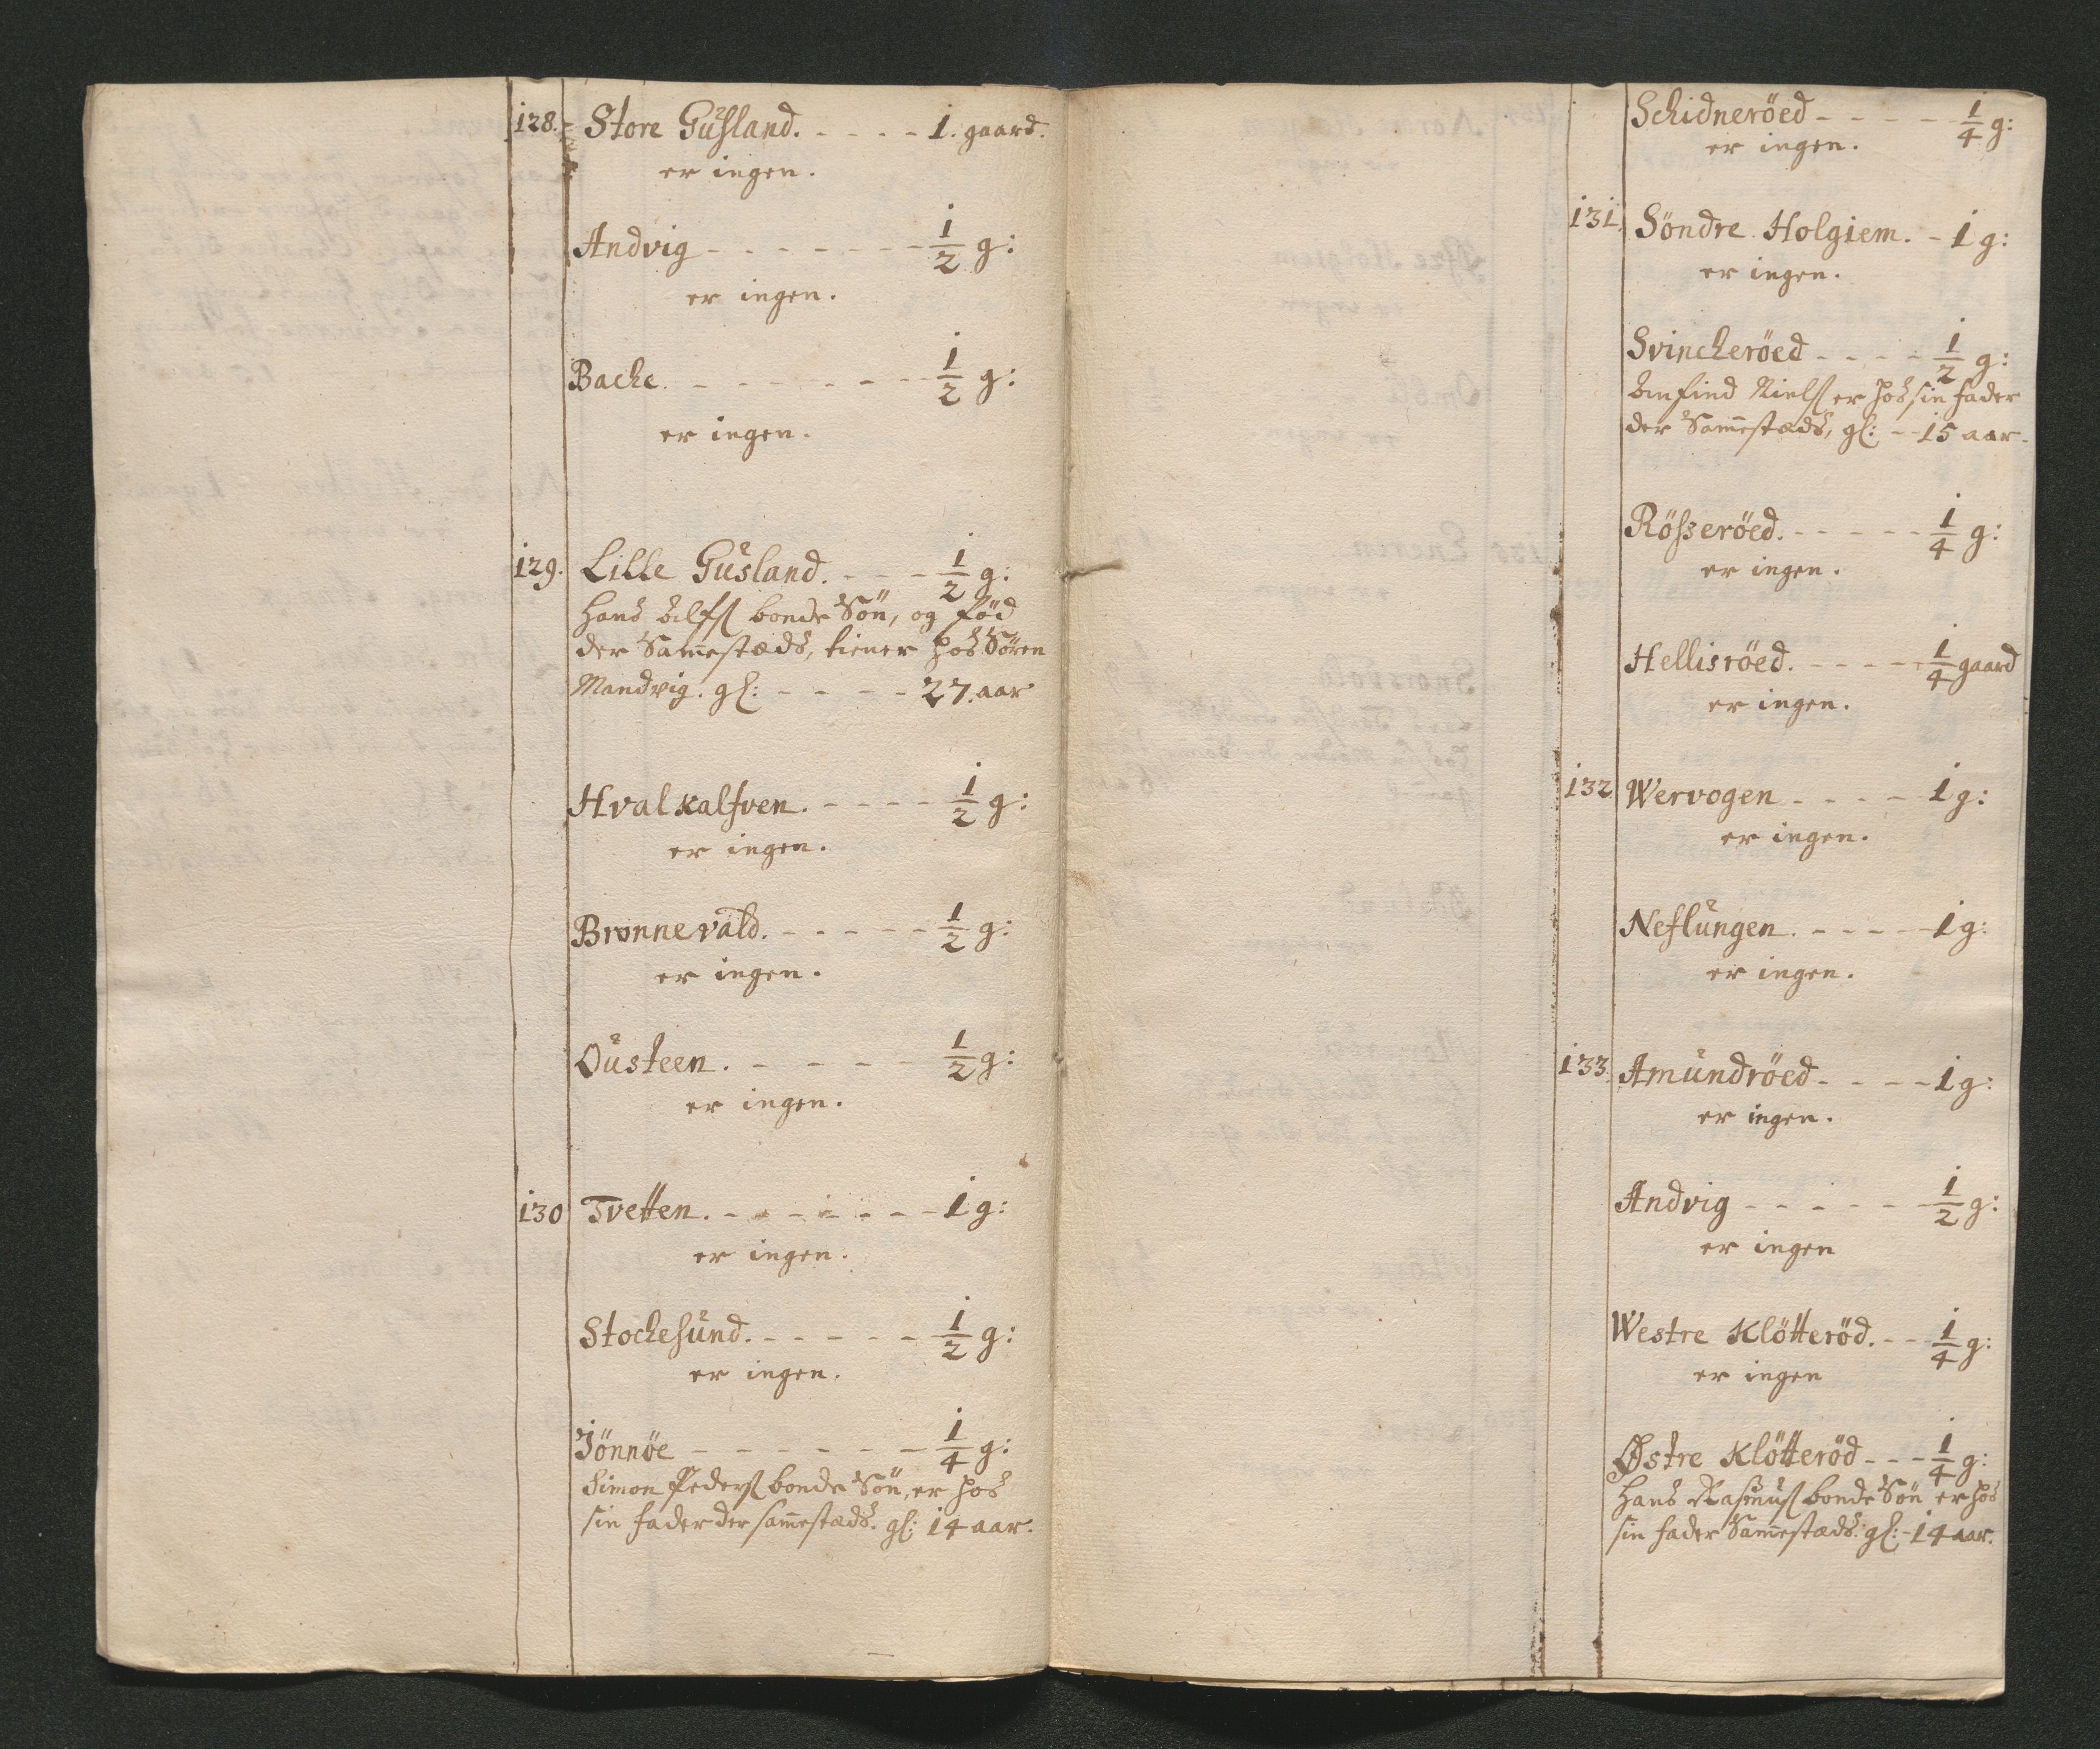 128. Store Gusland. - - - - 1. gaard.
er ingen.
Andvig - - - - - - - 1/2 g:
er ingen.
Backe. - - - - - - - 1/2 g:
er ingen.
129. Lille Gusland. - - - 1/2 g:
Hans Alfs: bonde Sön, og föd
der Sam̄estæds, tiener hos Sören
Mandvig. gl: - - - - - 27. aar
Hvalkalfven. - - - - 1/2 g:
er ingen.
Bronnevald. - - - - - 1/2 g:
er ingen.
Ousteen. - - - - 1/2 g:
er ingen.
130 Tvetten. - - - - - - - 1 g:
er ingen.
Stockesund. - - - - - 1/2 g:
er ingen.
Jönnöe - - - - - - - 1/4 g:
Simon Peders: bonde Sön, er hos
sin fader der sam̄estæds. gl: 14 aar.
Schidneröed - - - - - 1/4 g:
er ingen.
131. Söndre Holgiem. - 1 g:
er ingen.
Svinckeröed - - - - 1/2 g:
Niels: er hos sin fader
der Sam̄estæds, gl: - - 15 aar.
Rösseröed. - - - - - 1/4 g:
er ingen.
Hellisröed. - - - - - 1/4 gaard
er ingen.
132 Wervogen - - - - 1 g:
er ingen.
Neflungen. - - - - - 1 g:
er ingen.
133. Amundröed - - - - 1 g:
er ingen.
Andvig - - - - - - 1/2 g:
er ingen
Westre Klötteröd. - - 1/4 g:
er ingen
Østre Klötteröd - - - 1/4 g:
Hans Rasmus: bonde Sön er hos
sin fader Sam̄estæds. gl: - 14 aar.